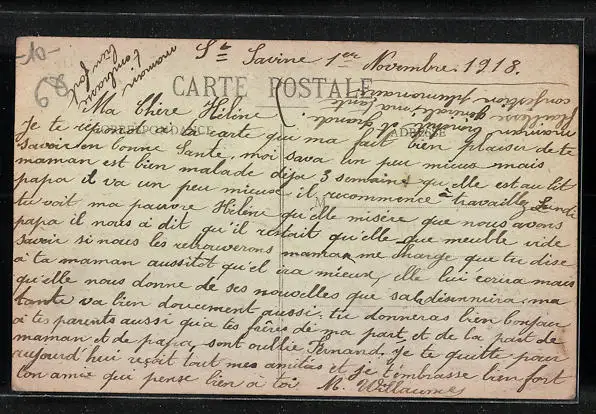 -10-
68
Ste Savine 1er Novembre. 1918.
CARTE POSTALE
CORRESPONDANCE
ADRESSE
M
Ma Chère Hélène
Je te réponse à ta carte qui ma fait bien plaisir de te
savoir en bonne Santé, moi sava un peu mieux mais
maman est bien malade dija 3 semaines qu'elle est au lit
papa il va un peu mieux il recommence à travaillez Lundi
tu voit ma pauvre Hélène qu'elle misère que nous avons
papa il nous à dit qu'il restait qu'elle que meuble vide
savoir si nous les retrouverons maman me charge que tu dise
à ta maman aussitot qu'el ira mieux, elle lui écrira mais
qu'elle nous donne de ses nouvelles que sa
tante va bien doucement aussi, tu donneras bien bonjour
à tes parents aussi qu'a tes frères de ma part et de la part de
maman et de papa, sont oublié Fernand, je te quitte pour
aujourd'hui reçoit tout mes amitiés et je t'embrasse bien fort
ton amie qui pense bien à toi M. Willaume
maman
t'embrasse
bien fort